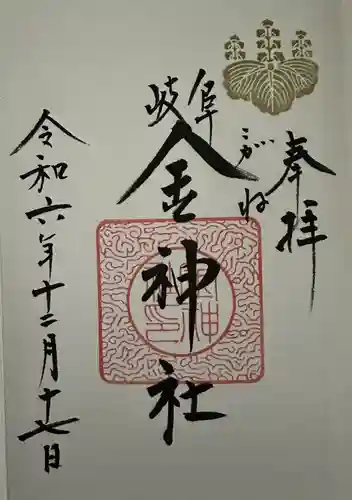 奉拝
岐阜
こがね
金神社
令和六年十二月十七日